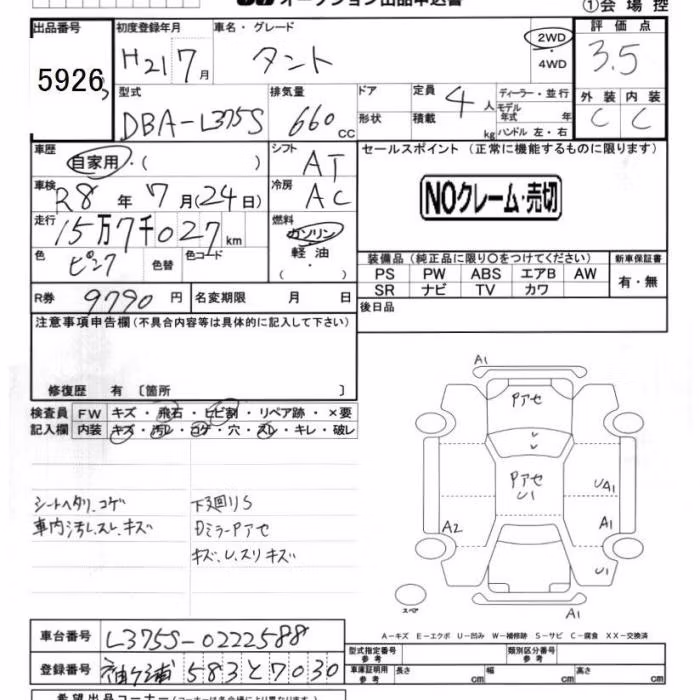 オークション出品申込書 ①会場控
出品番号 初度登録年月 車名・グレード 2WD 評価点
5926 H21 7月 タント ・4WD 3.5
型式 排気量 ドア 定員 4人 ディーラー・並行 外装 内装
DBA-L375S 660cc 形状 積載 kg モデル年式 年 ハンドル 左・右 C C
車歴 自家用・( ) シフト AT セールスポイント (正常に機能するものに限ります)
車検 R8年7月(24日) 冷房 AC NOクレーム・売切
走行 15万7千027km 燃料 ガソリン
軽油
・( )
色 ピンク 色替 色コード
装備品(純正品に限り○をつけてください) 新車保証書
PS PW ABS エアB AW 有・無
SR ナビ TV カワ
R券 9790円 名変期限 月 日 後日品
注意事項申告欄(不具合内容等は具体的に記入して下さい)
修復歴 有 〔箇所 〕
検査員 FW キズ・飛石・ヒビ割・リペア跡・×要
記入欄 内装 キズ・汚レ・コゲ・穴・スレ・キレ・破レ
シートヘタリ、コゲ 下廻りS
車内汚レ、スレ、キズ Dミラー Pアセ
キズ、U、スリキズ
A1
Pアセ
Pアセ
U1
UA1
A2
A1
U1
スペア
A1
A-キズ E-エクボ U-凹み W-補修跡 S-サビ C-腐食 XX-交換済
車台番号 L375S-0222588 型式指定番号 参考 類別区分番号 参考
登録番号 袖ケ浦 583 と 7030 車庫証明用 参考 長さ cm 幅 cm 高さ cm
希望出品コーナー